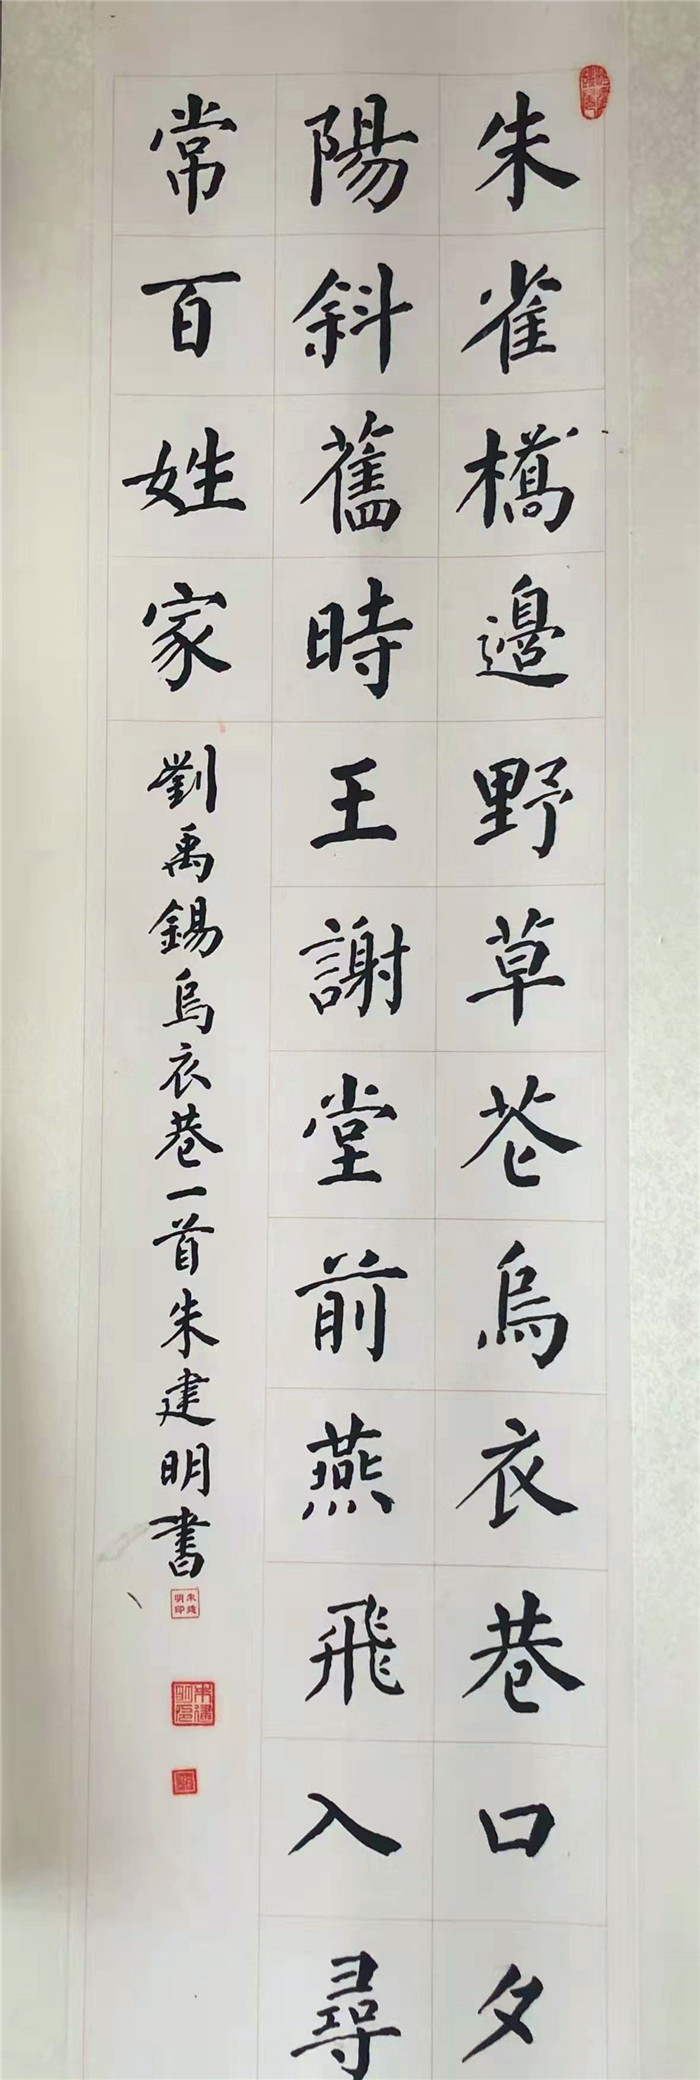 朱雀橋邊野草花烏衣巷口夕
陽斜舊時王謝堂前燕飛入尋
常百姓家
劉禹錫烏衣巷一首朱建明書
朱建明印